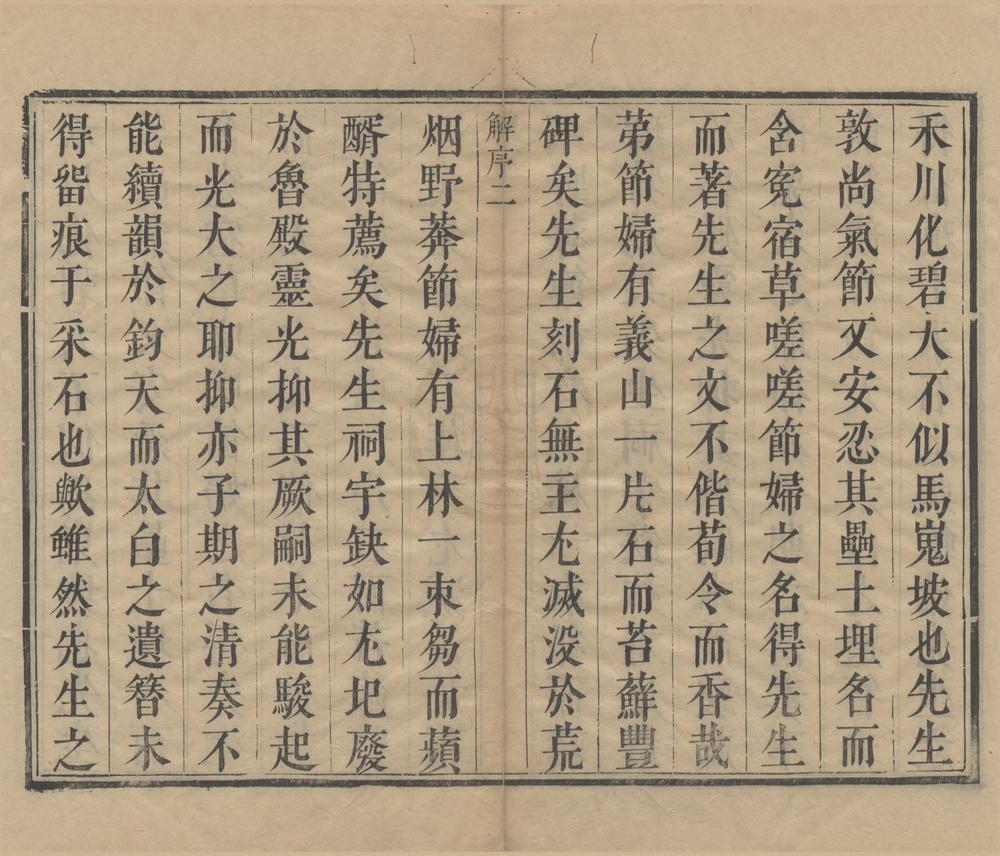 禾川化碧大不似馬嵬坡也先生
敦尚氣節又安忍其壘土埋名而
含寃宿草嗟嗟節婦之名得先生
而著先生之文不偕荀令而香哉
苐節婦有義山一片石而苔蘚豐
碑矣先生刻石無主尢滅没於荒
解序二
烟野莽節婦有上林一朿芻而蘋
醑特薦矣先生祠宇缺如尢圯廢
於魯殿靈光抑其厥嗣未能駿起
而光大之耶抑亦子期之清奏不
能續韻於鈞天而太白之遺簮未
得畱痕于采石也歟雖然先生之